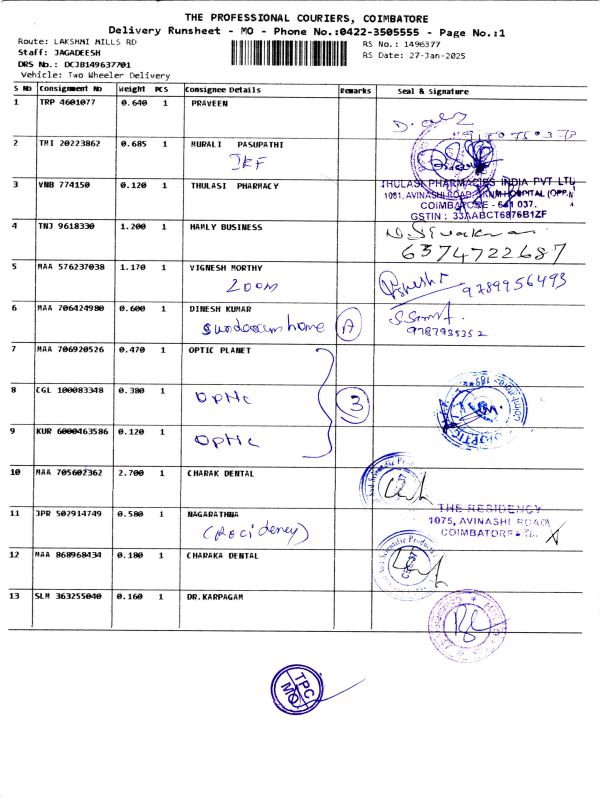 THE PROFESSIONAL COURIERS, COIMBATORE
Delivery Runsheet - MO - Phone No.:0422-3505555 - Page No.:1
Route: LAKSHMI MILLS RD
RS No.: 1496377
Staff: JAGADEESH
RS Date: 27-Jan-2025
DRS No.: DCJB149637701
Vehicle: Two Wheeler Delivery
S No Consignment No Weight PCS Consignee Details Remarks Seal & Signature
1 TRP 4601077 0.640 1 PRAVEEN
2 TMI 20223862 0.685 1 MURALI PASUPATHI
JKF
3 VNB 774150 0.120 1 THULASI PHARMACY
THULASI PHARMACIES INDIA PVT LTD
1081, AVINASHI ROAD, HOSPITAL (OPP.)
COIMBATORE - 641 037.
GSTIN : 33AABCT6876B1ZF
4 TNJ 9618330 1.200 1 HAMLY BUSINESS
6374722687
5 MAA 576237038 1.170 1 VIGNESH MORTHY
Zoom
9789956493
6 MAA 706424980 0.600 1 DINESH KUMAR
Sundaram home A
9787935352
7 MAA 706920526 0.470 1 OPTIC PLANET
8 CGL 100083348 0.380 1 Optic 3
9 KUR 6000463586 0.120 1 Optic
10 MAA 705602362 2.700 1 CHARAK DENTAL
11 JPR 502914749 0.580 1 NAGARATHNA
(Recidency)
THE RESIDENCY
1075, AVINASHI ROAD,
COIMBATORE
12 MAA 868968434 0.180 1 CHARAKA DENTAL
13 SLM 363255040 0.160 1 DR.KARPAGAM
TPC
MO